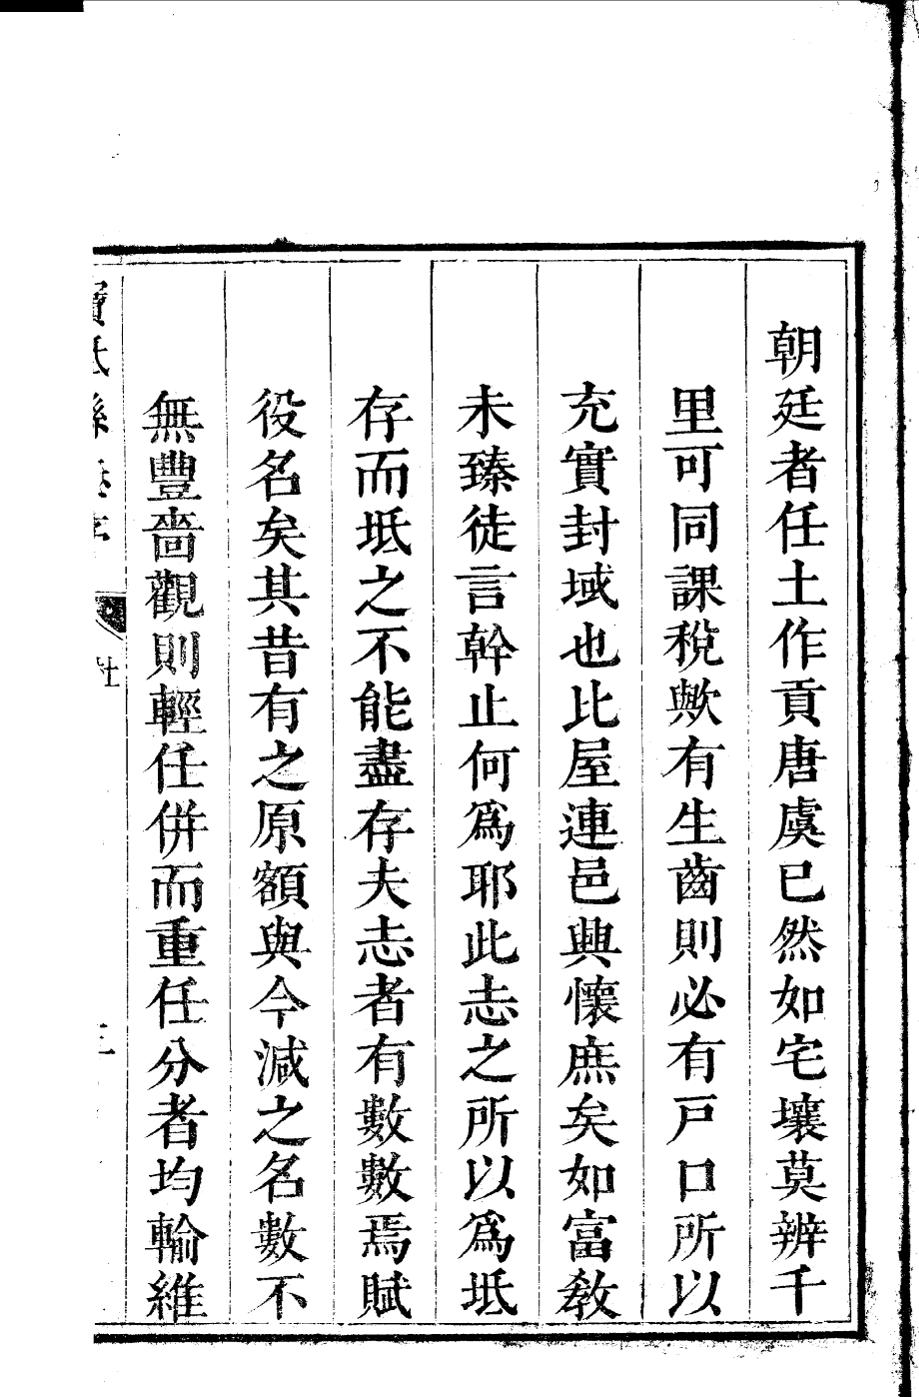 朝廷者任土作貢唐虞已然如宅壤莫辨千
里可同課稅歟有生齒則必有戸口所以
充實封域也比屋連邑興懷庶矣如富敎
未臻徒言幹止何爲耶此志之所以爲坻
存而坻之不能盡存夫志者有數數焉賦
役名矣其昔有之原額與今減之名數不
無豐嗇觀則輕任併而重任分者均輸維
寶坻縣志序
杜
三